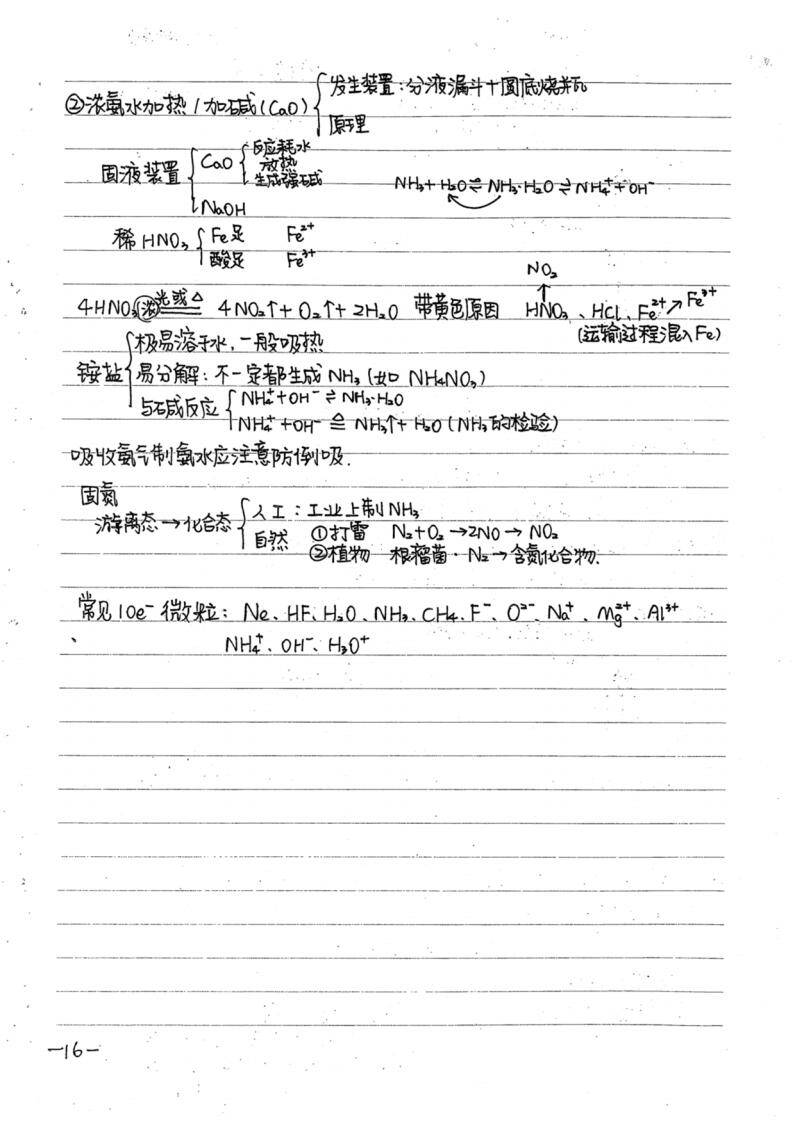 ②浓氨水加热/加碱(CaO) { 发生装置:分液漏斗+圆底烧瓶
原理
固液装置 { CaO { 反应耗水
放热
生成强碱
NH₃+H₂O⇌NH₃·H₂O⇌NH₄⁺+OH⁻
NaOH
稀HNO₃ { Fe足 Fe²⁺
酸足 Fe³⁺
4HNO₃(浓) 光或△ 4NO₂↑+O₂↑+2H₂O 带黄色原因 HNO₃、HCl、Fe²⁺↗Fe³⁺
NO₂
↑
(运输过程混入Fe)
铵盐 { 极易溶于水,一般吸热
易分解:不一定都生成NH₃(如NH₄NO₃)
与碱反应 { NH₄⁺+OH⁻⇌NH₃·H₂O
NH₄⁺+OH⁻ ≜ NH₃↑+H₂O(NH₃的检验)
吸收氨气制氨水应注意防倒吸.
固氮
游离态→化合态 { 人工:工业上制NH₃
自然 ①打雷 N₂+O₂→2NO→NO₂
②植物 根瘤菌·N₂→含氮化合物.
常见10e⁻微粒:Ne、HF、H₂O、NH₃、CH₄、F⁻、O²⁻、Na⁺、Mg²⁺、Al³⁺
、NH₄⁺、OH⁻、H₃O⁺
-16-